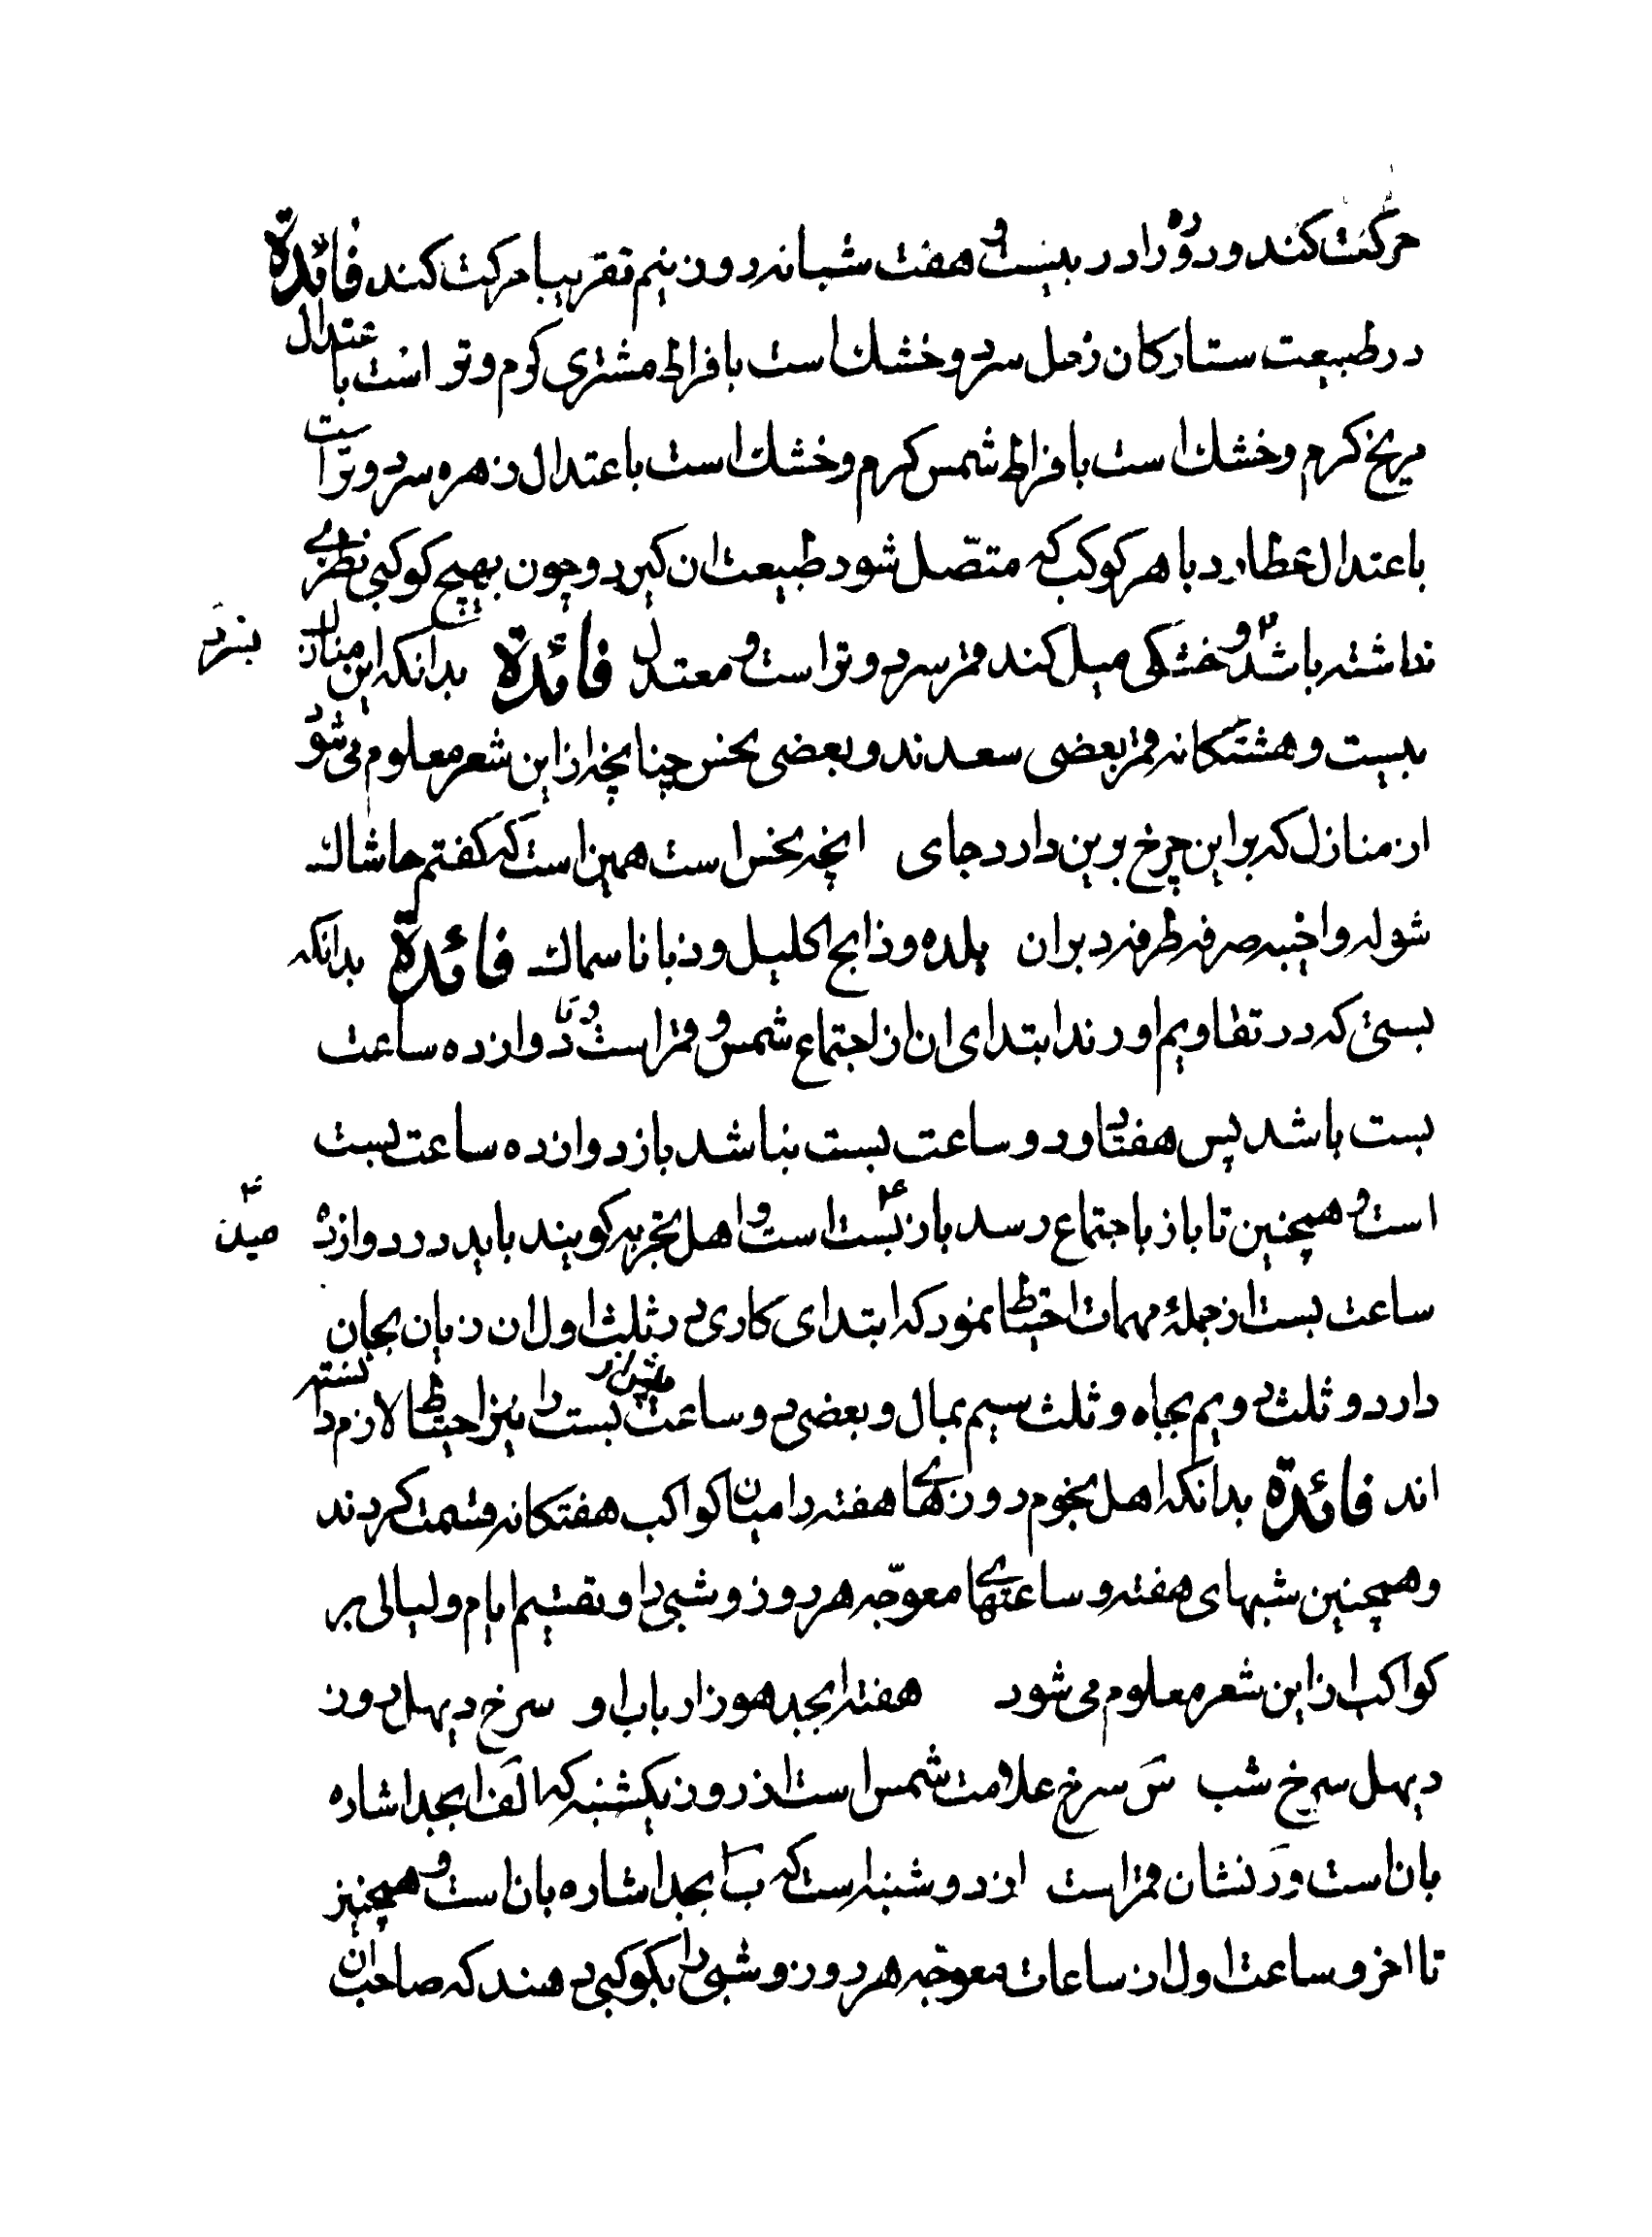 حرکت کند و دوره را در بیست و هفت شبانه روز نیم تقریبا حرکت کند فائدة
در طبیعت ستارکان زحل سرد و خشك است بافراط مشتری کرم و تر است با عتدال
مریخ کرم و خشك است بافراط شمس کرم و خشك است باعتدال زهره سرد و تر است
باعتدال عطارد با هر کوکب که متصّل شود طبیعت ان کیرد و چون بهیچ کوکبی نظرے
نداشته باشد و خشکی میل کند قمر سرد و تر است و معتدل فائدة بدانکه این منازل
بسرد
بیست و هشتکانه قمر بعضی سعدند و بعضی نحس چنانچه از این شعر معلوم می شود
از منازل که بر این چرخ برین دارد جای انچه نحس است همین است که کفتم حاشاك
شوله و اخبیه صرفه طرفه دبران بلده و ذابح اکلیل و زبانا سماك فائدة بدانکه
بستی که در تقاویم اورند ابتدای ان از اجتماع شمس و قمر است و تا دوازده ساعت
بست باشد پس هفتاد و دو ساعت بست نباشد باز دوازده ساعت بست
است و همچنین تا باز باجتماع رسد باز بست است و اهل تجربه کویند باید در دوازده
ساعت بست از جملۀ مهمات احتیاط نمود که ابتدای کاری در ثلث اول ان زیان بجان
دارد و ثلث دویم بجاه و ثلث سیم بمال و بعضی دو ساعت پیش از بست را نیز احتیاط لازم دانسته
اند فائدة بدانکه اهل نجوم روزهاے هفته را میان کواکب هفتکانه قسمت کردند
و همچنین شبهای هفته و ساعتهاے معوّجه هر روز و شبی را و تقسیم ایام و لیالی بر
کواکب از این شعر معلوم می شود هفته ابجد هوز ارباب او سرخ دیهل روز
دیهل سرخ شب س سرخ علامت شمس است از روز یکشنبه که الف ابجد اشاره
بان است و ر نشان قمر است از دوشنبه است که ب ابجد اشاره بان است و همچنین
تا اخر و ساعت اول از ساعات معوّجه هر روز و شبی را بکوکبی دهند که صاحب ان